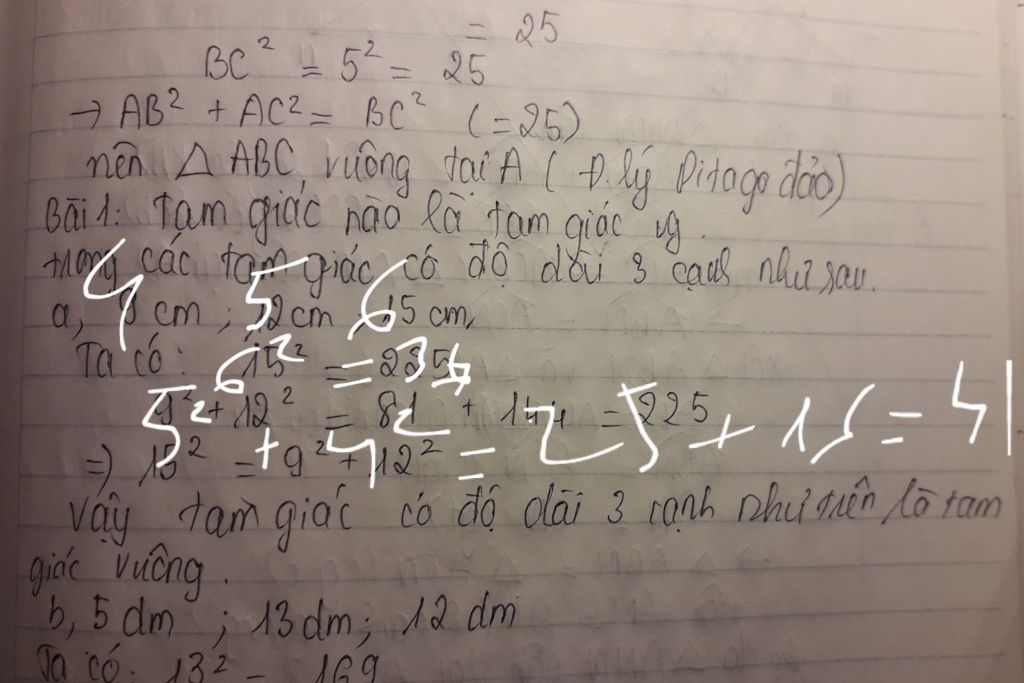 = 25
BC² = 5² = 25
→ AB² + AC² = BC² (= 25)
nên △ ABC vuông tại A ( Đ.lý Pitago đảo)
Bài 1: Tam giác nào là tam giác vg.
trong các tam giác có độ dài 3 cạnh như sau.
4 5 6
a, 9 cm ; 12 cm ; 15 cm
Ta có: 15² = 225
6² = 36
9² + 12² = 81 + 144 = 225
5² + 4² = 25 + 16 = 41
⇒ 15² = 9² + 12²
Vậy tam giác có độ dài 3 cạnh như trên là tam
giác vuông.
b, 5 dm ; 13 dm ; 12 dm
Ta có: 13² = 169